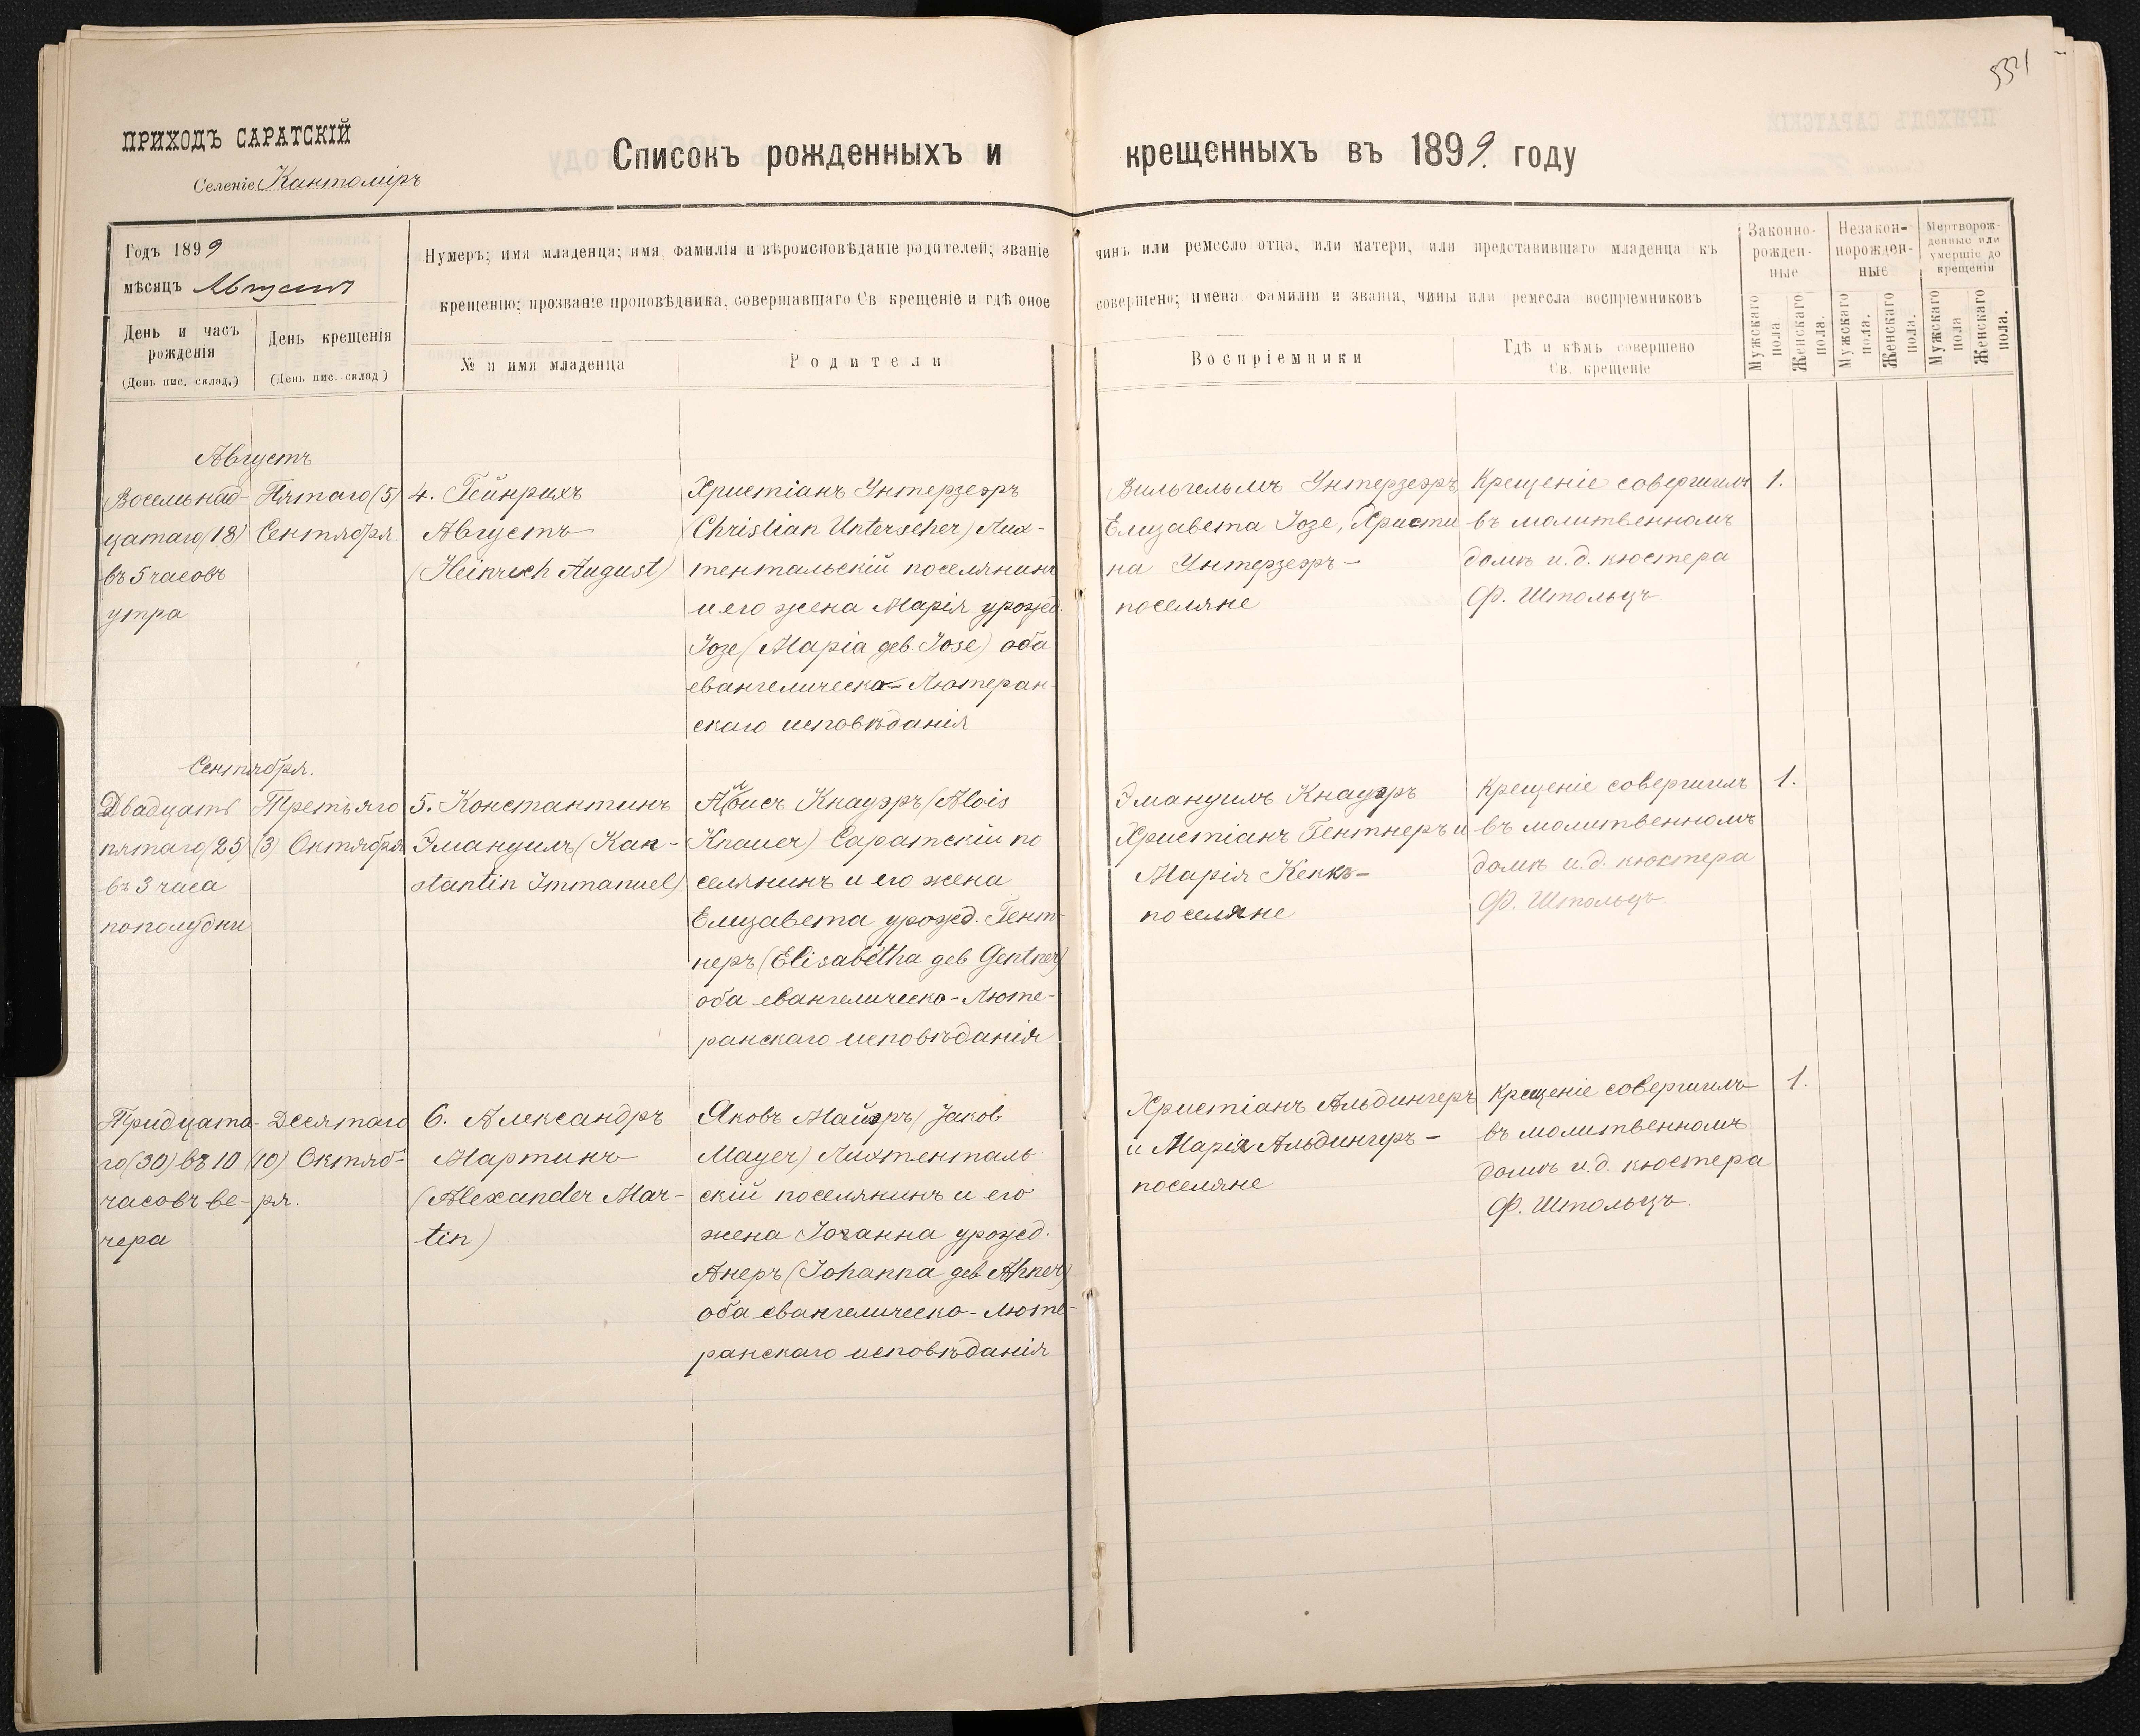 5321
ПРИХОДЪ САРАТСКІЙ
Селеніе Кантоміръ
Списокъ рожденныхъ и крещенныхъ въ 1899. году
Годъ 1899
мѣсяцъ Августъ
День и часъ рожденія
(День пис. склад.)
День крещенія
(День пис. склад)
Нумеръ; имя младенца; имя фамилія и вѣроисповѣданіе родителей; званіе
чинъ или ремесло отца, или матери, или представившаго младенца къ
крещенію; прозваніе проповѣдника, совершавшаго Св крещеніе и гдѣ оное
совершено; имена фамиліи и званія, чины или ремесла воспріемниковъ
№ и имя младенца
Родители
Воспріемники
Гдѣ и кѣмъ совершено
Св. крещеніе
Законно-
рожден-
ные
Незакон-
норожден-
ные
Мертворож-
денные или
умершіе до
крещенія
Мужскаго пола
Женскаго пола.
Мужскаго пола.
Женскаго пола.
Мужскаго пола
Женскаго пола.
Августъ
Восемьнад-
цатаго (18)
въ 5 часовъ
утра
Пятаго (5)
Сентября.
4. Гейнрихъ
Августъ
(Heinrich August)
Христіанъ Унтерзееръ
(Christian Unterseher) Лих-
тентальскій поселянинъ
и его жена Марія урожд.
Іозе (Маріа геб. Jose) оба
евангелическо-Лютеран-
скаго исповѣданія
Вильгельмъ Унтерзееръ,
Елизавета Іозе, Христи
на Унтерзееръ -
поселяне
Крещеніе совершилъ
въ молитвенномъ
домѣ и.д. кюстера
Ф. Штольцъ
1.
Сентября.
Двадцать
пятаго (25)
въ 3 часа
пополудни
Третьяго
(3) Октября
5. Константинъ
Эмануилъ (Kon-
stantin Immanuel)
Алоисъ Кнауэръ (Alois
Knauer) Саратскій по
селянинъ и его жена
Елизавета урожд. Гент-
неръ (Elisabetha геб Gentner)
оба евангелическо-Люте-
ранскаго исповѣданія
Эмануилъ Кнауэръ
Христіанъ Гентнеръ и
Марія Кеккъ -
поселяне
Крещеніе совершилъ
въ молитвенномъ
домѣ и.д. кюстера
Ф. Штольцъ
1.
Тридцата-
го (30) въ 10
часовъ ве-
чера
Десятаго
(10) Октяб-
ря.
6. Александръ
Мартинъ
(Alexander Mar-
tin)
Яковъ Майэръ (Jakob
Mayer) Лихтенталь
скій поселянинъ и его
жена Іоганна урожд.
Анеръ (Johanna геб Ahner)
оба евангелическо-Люте-
ранскаго исповѣданія
Христіанъ Альдингеръ
и Марія Альдингеръ -
поселяне
Крещеніе совершилъ
въ молитвенномъ
домѣ и.д. кюстера
Ф. Штольцъ.
1.